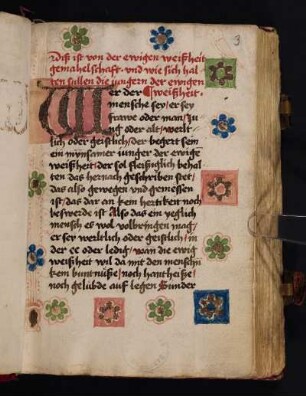 3
Diß ist von der ewigen weißheit
gemahelschaft · vnd wie sich hal
ten sullen die jungern der ewigen
Wer der weißheit ·
mensche sey / er sey
frawe oder man / Ju
ng oder alt / werlt
lich oder geistlich / der begert sein
ein mynsamer iunger der ewige
weißheit / der sol fleissiglich behal
ten das hernach geschriben stet /
das also gewegen vnd gemessen
ist / das dar an kein hertikeit noch
beswerde ist Also das ein yeglich
mensch es wol volbringen mag /
er sey werltlich oder geistlich / in
der ee oder ledig / wan die ewig
weißheit wil da mit den menschen
kein buntnüße / noch hantheiße /
noch gelubde auf legen Sunder